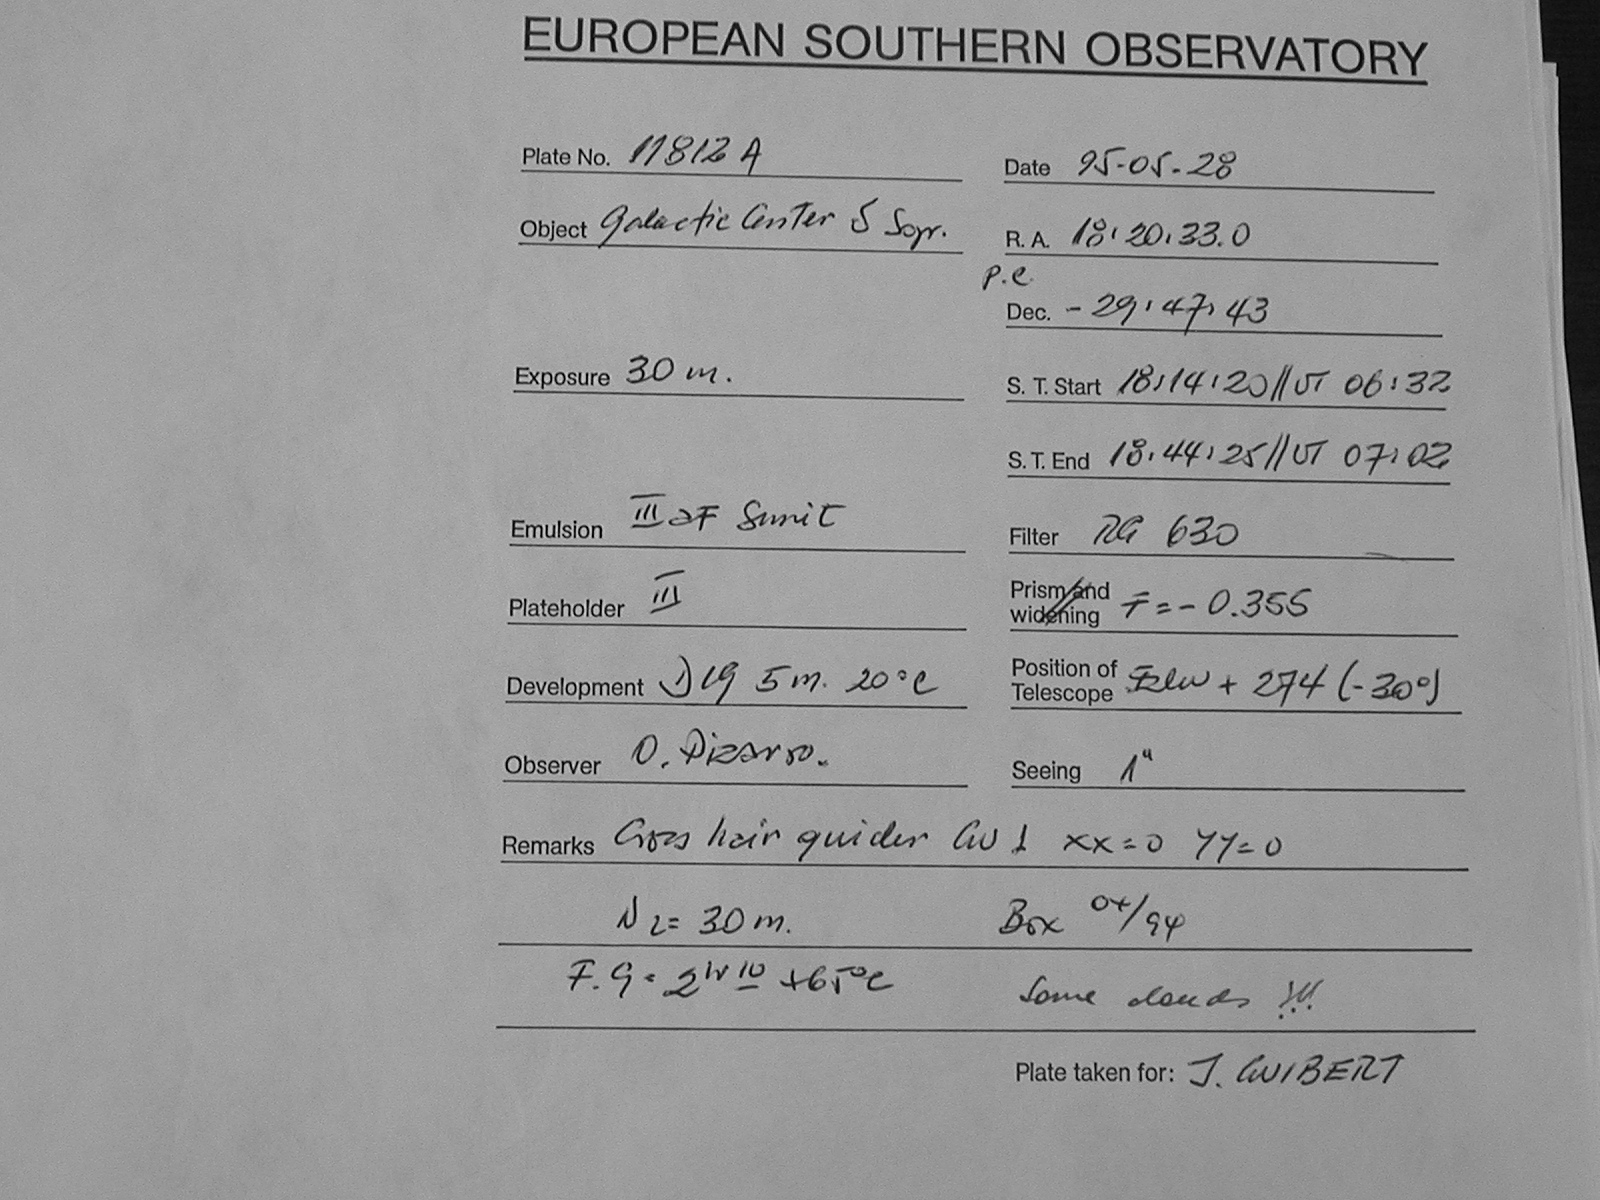 EUROPEAN SOUTHERN OBSERVATORY
Plate No. 11812 A
Date 95-05-28
Object Galactic Center 5 Sgr.
R. A. 18:20:33.0
p.e.
Dec. - 29:47:43
Exposure 30 m.
S. T. Start 18:14:20//UT 06:32
S. T. End 18:44:25//UT 07:02
Emulsion III aF
Filter RG 630
Plateholder III
Prism and widening F = - 0.355
Development D19 5 m. 20°C
Position of Telescope + 274 (-30°)
Observer O. Pizarro.
Seeing 1"
Remarks Cross hair guider GW 1 xx=0 YY=0
N2= 30 m.
Box 04/94
F.G = +65°C
Some clouds !!!
Plate taken for: J. GUIBERT